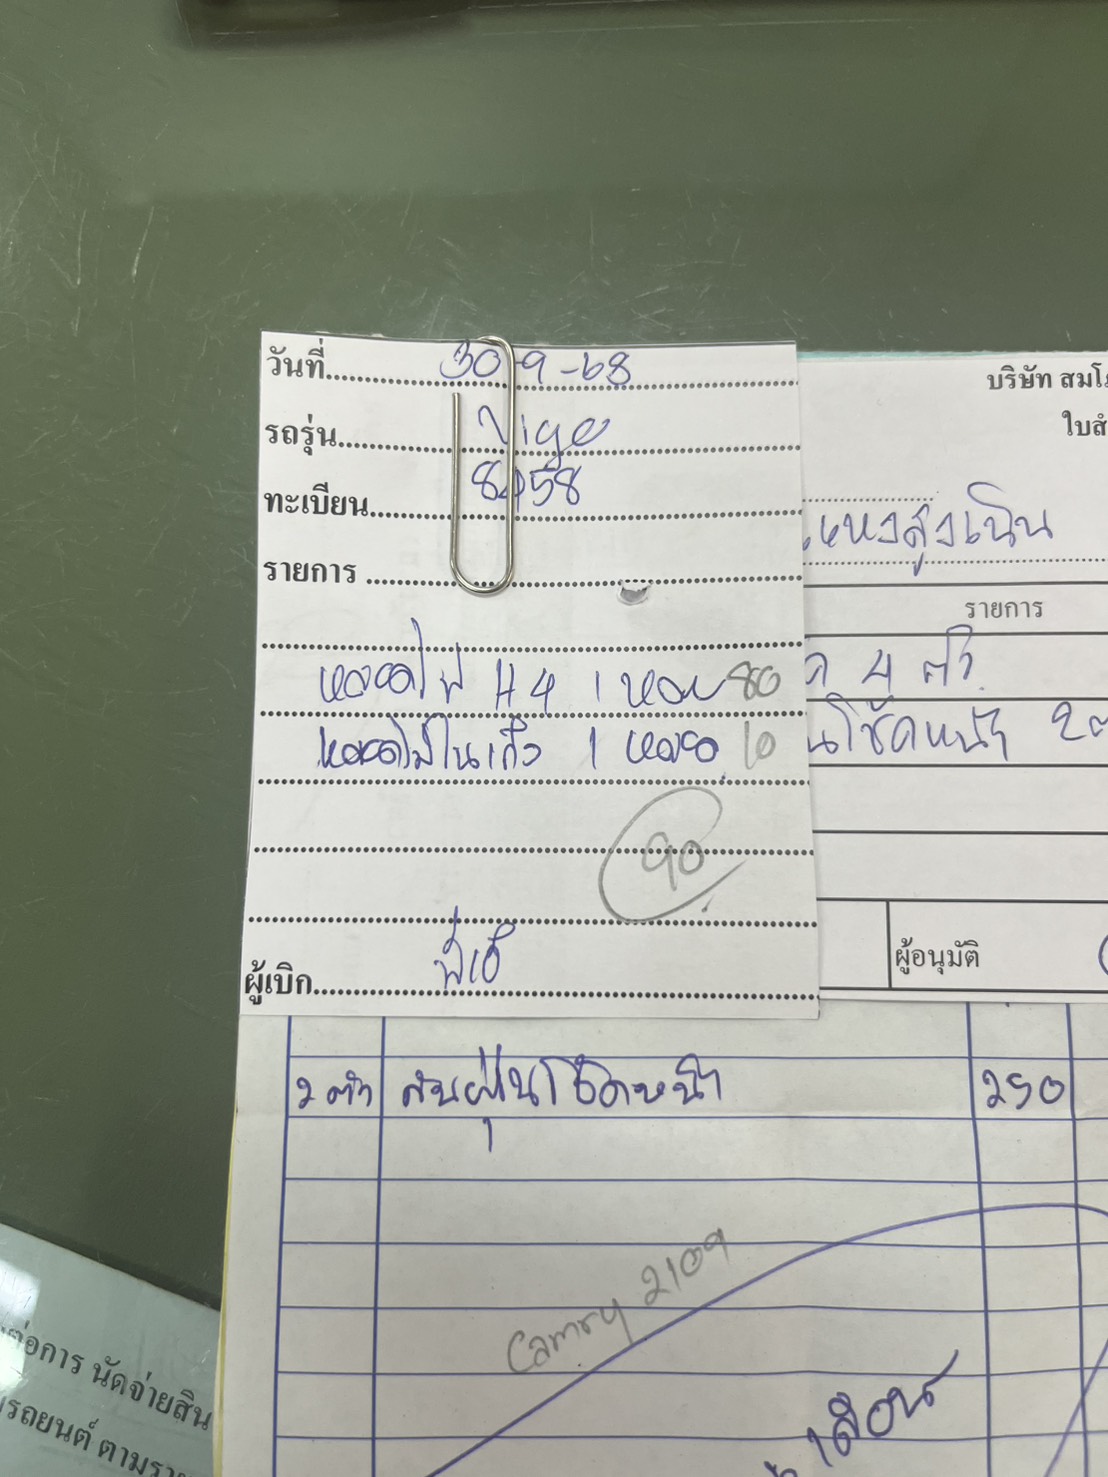 วันที่ 30-9-68
รถรุ่น Vigo
ทะเบียน 8458
รายการ
หลอดไฟ H4 1 หลอด 80
1 หลอด 10
90
ผู้เบิก
บริษัท สมโภ
ใบสั่
แหงสูงเนิน
รายการ
4 ตัว
นโช้คหน้า 2
ผู้อนุมัติ
2 ตัว กันฝุ่นโช้คหน้า 250
Camry 2109
เดือน
ต่อการ นัดจ่ายสิน
รถยนต์ ตามราย